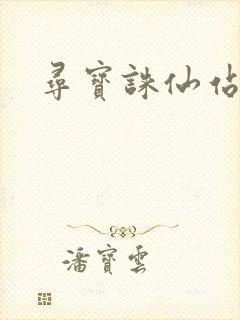 尋寶誅仙佔
潘寶雲